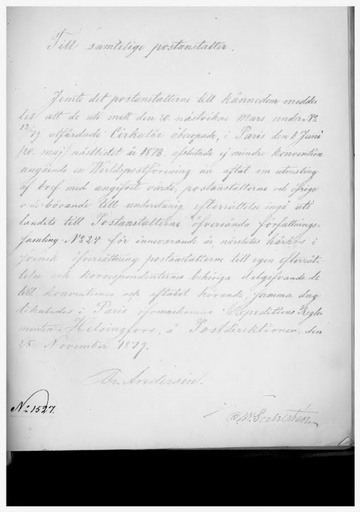 Till samtelige postanstalter.
Jemte det postanstalterne till kännedom medde-
les att de uti mitt den 20 nästvikne Mars under No
12/79 utfärdade Cirkulär åberopade, i Paris den 1 Juni
(20 maj) nästlidet år 1878, afslutade ej mindre konvention
angående en Verldspostförening än aftal om utvexling
af bref med angifvet värde, postanstalterne och öfrige
vederbörande till underdånig efterrättelse ingå uti
landets till Postanstalterne öfversända författnings-
samling No 27 för innevarande år
fransk öfversättning postanstalterne till egen efterrät-
telse och korrespondenterne behöriga delgifvande de
till konventionen och aftalet hörande, samma dag
i Paris Expeditions Regle-
menten. Helsingfors, å Postdirektionen, den
28 November 1879.
No 1527.